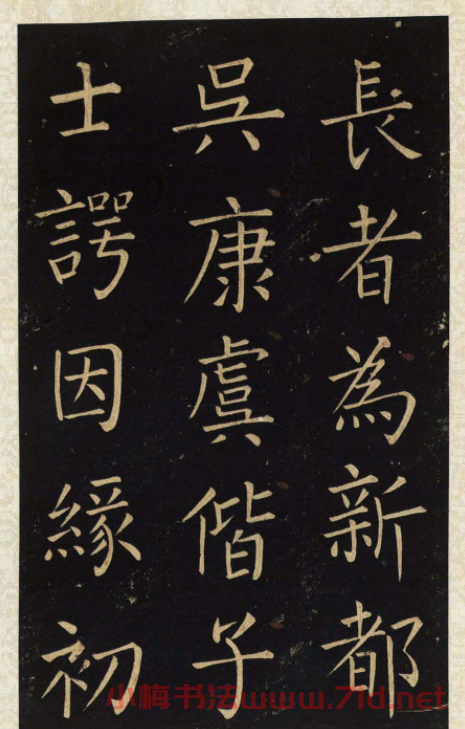 長者為新都
吳康虞偕子
士諤因緣初
小梅书法www.71d.net